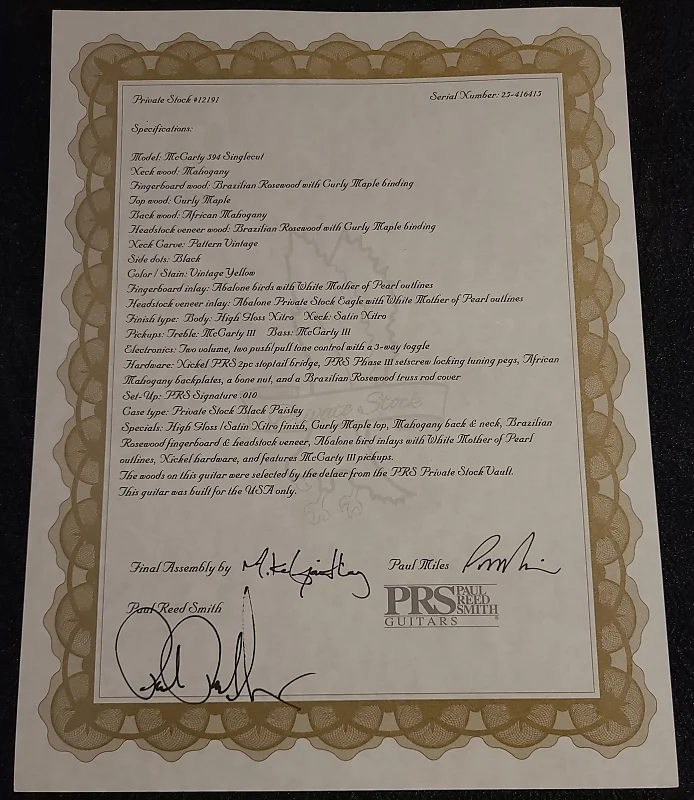 Private Stock #12191
Serial Number: 25-416415
Specifications:
Model: McCarty 594 Singlecut
Neck wood: Mahogany
Fingerboard wood: Brazilian Rosewood with Curly Maple binding
Top wood: Curly Maple
Back wood: African Mahogany
Headstock veneer wood: Brazilian Rosewood with Curly Maple binding
Neck Carve: Pattern Vintage
Side dots: Black
Color / Stain: Vintage Yellow
Fingerboard inlay: Abalone birds with White Mother of Pearl outlines
Headstock veneer inlay: Abalone Private Stock Eagle with White Mother of Pearl outlines
Finish type: Body: High Gloss Nitro Neck: Satin Nitro
Pickups: Treble: McCarty III Bass: McCarty III
Electronics: Two volume, two push/pull tone control with a 3-way toggle
Hardware: Nickel PRS 2pc stoptail bridge, PRS Phase III setscrew locking tuning pegs, African
Mahogany backplates, a bone nut, and a Brazilian Rosewood truss rod cover
Set-Up: PRS Signature .010
Case type: Private Stock Black Paisley
Specials: High Gloss / Satin Nitro finish, Curly Maple top, Mahogany back & neck, Brazilian
Rosewood fingerboard & headstock veneer, Abalone bird inlays with White Mother of Pearl
outlines, Nickel hardware, and features McCarty III pickups.
The woods on this guitar were selected by the delaer from the PRS Private Stock Vault.
This guitar was built for the USA only.
Private Stock
Final Assembly by
Paul Miles
Paul Reed Smith
PRS PAUL REED SMITH
GUITARS